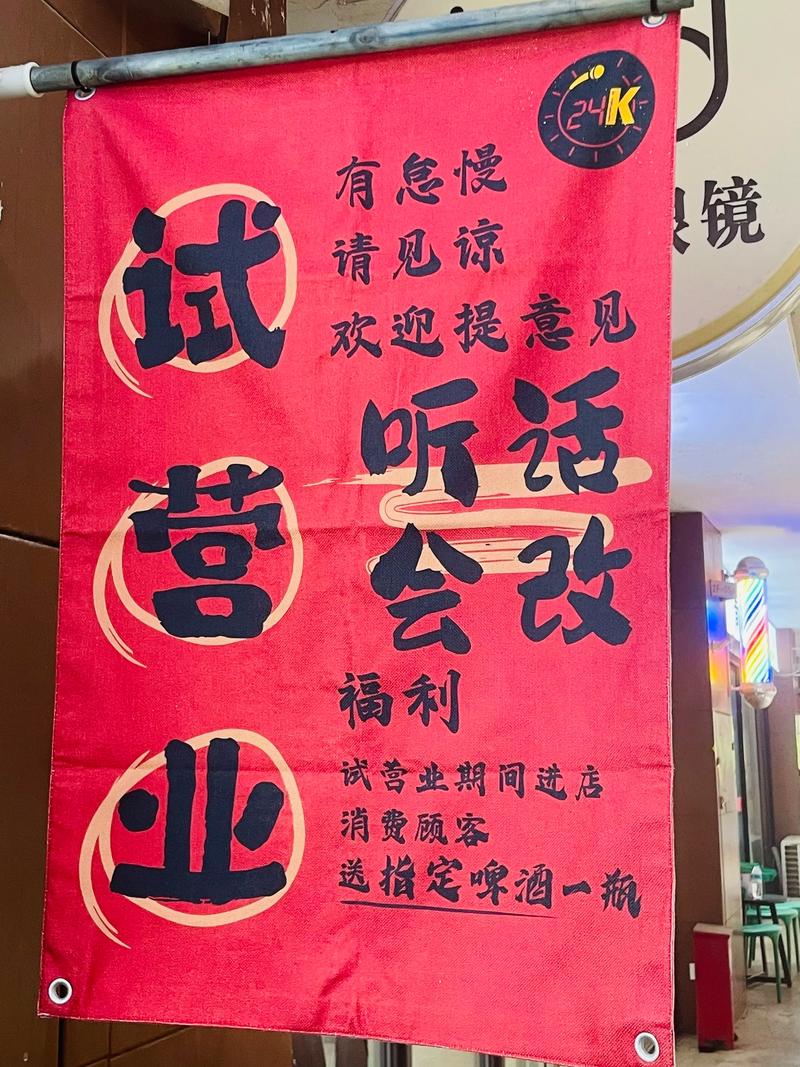 24K
试营业
有怠慢
请见谅
欢迎提意见
听话
会改
福利
试营业期间进店
消费顾客
送指定啤酒一瓶
眼镜